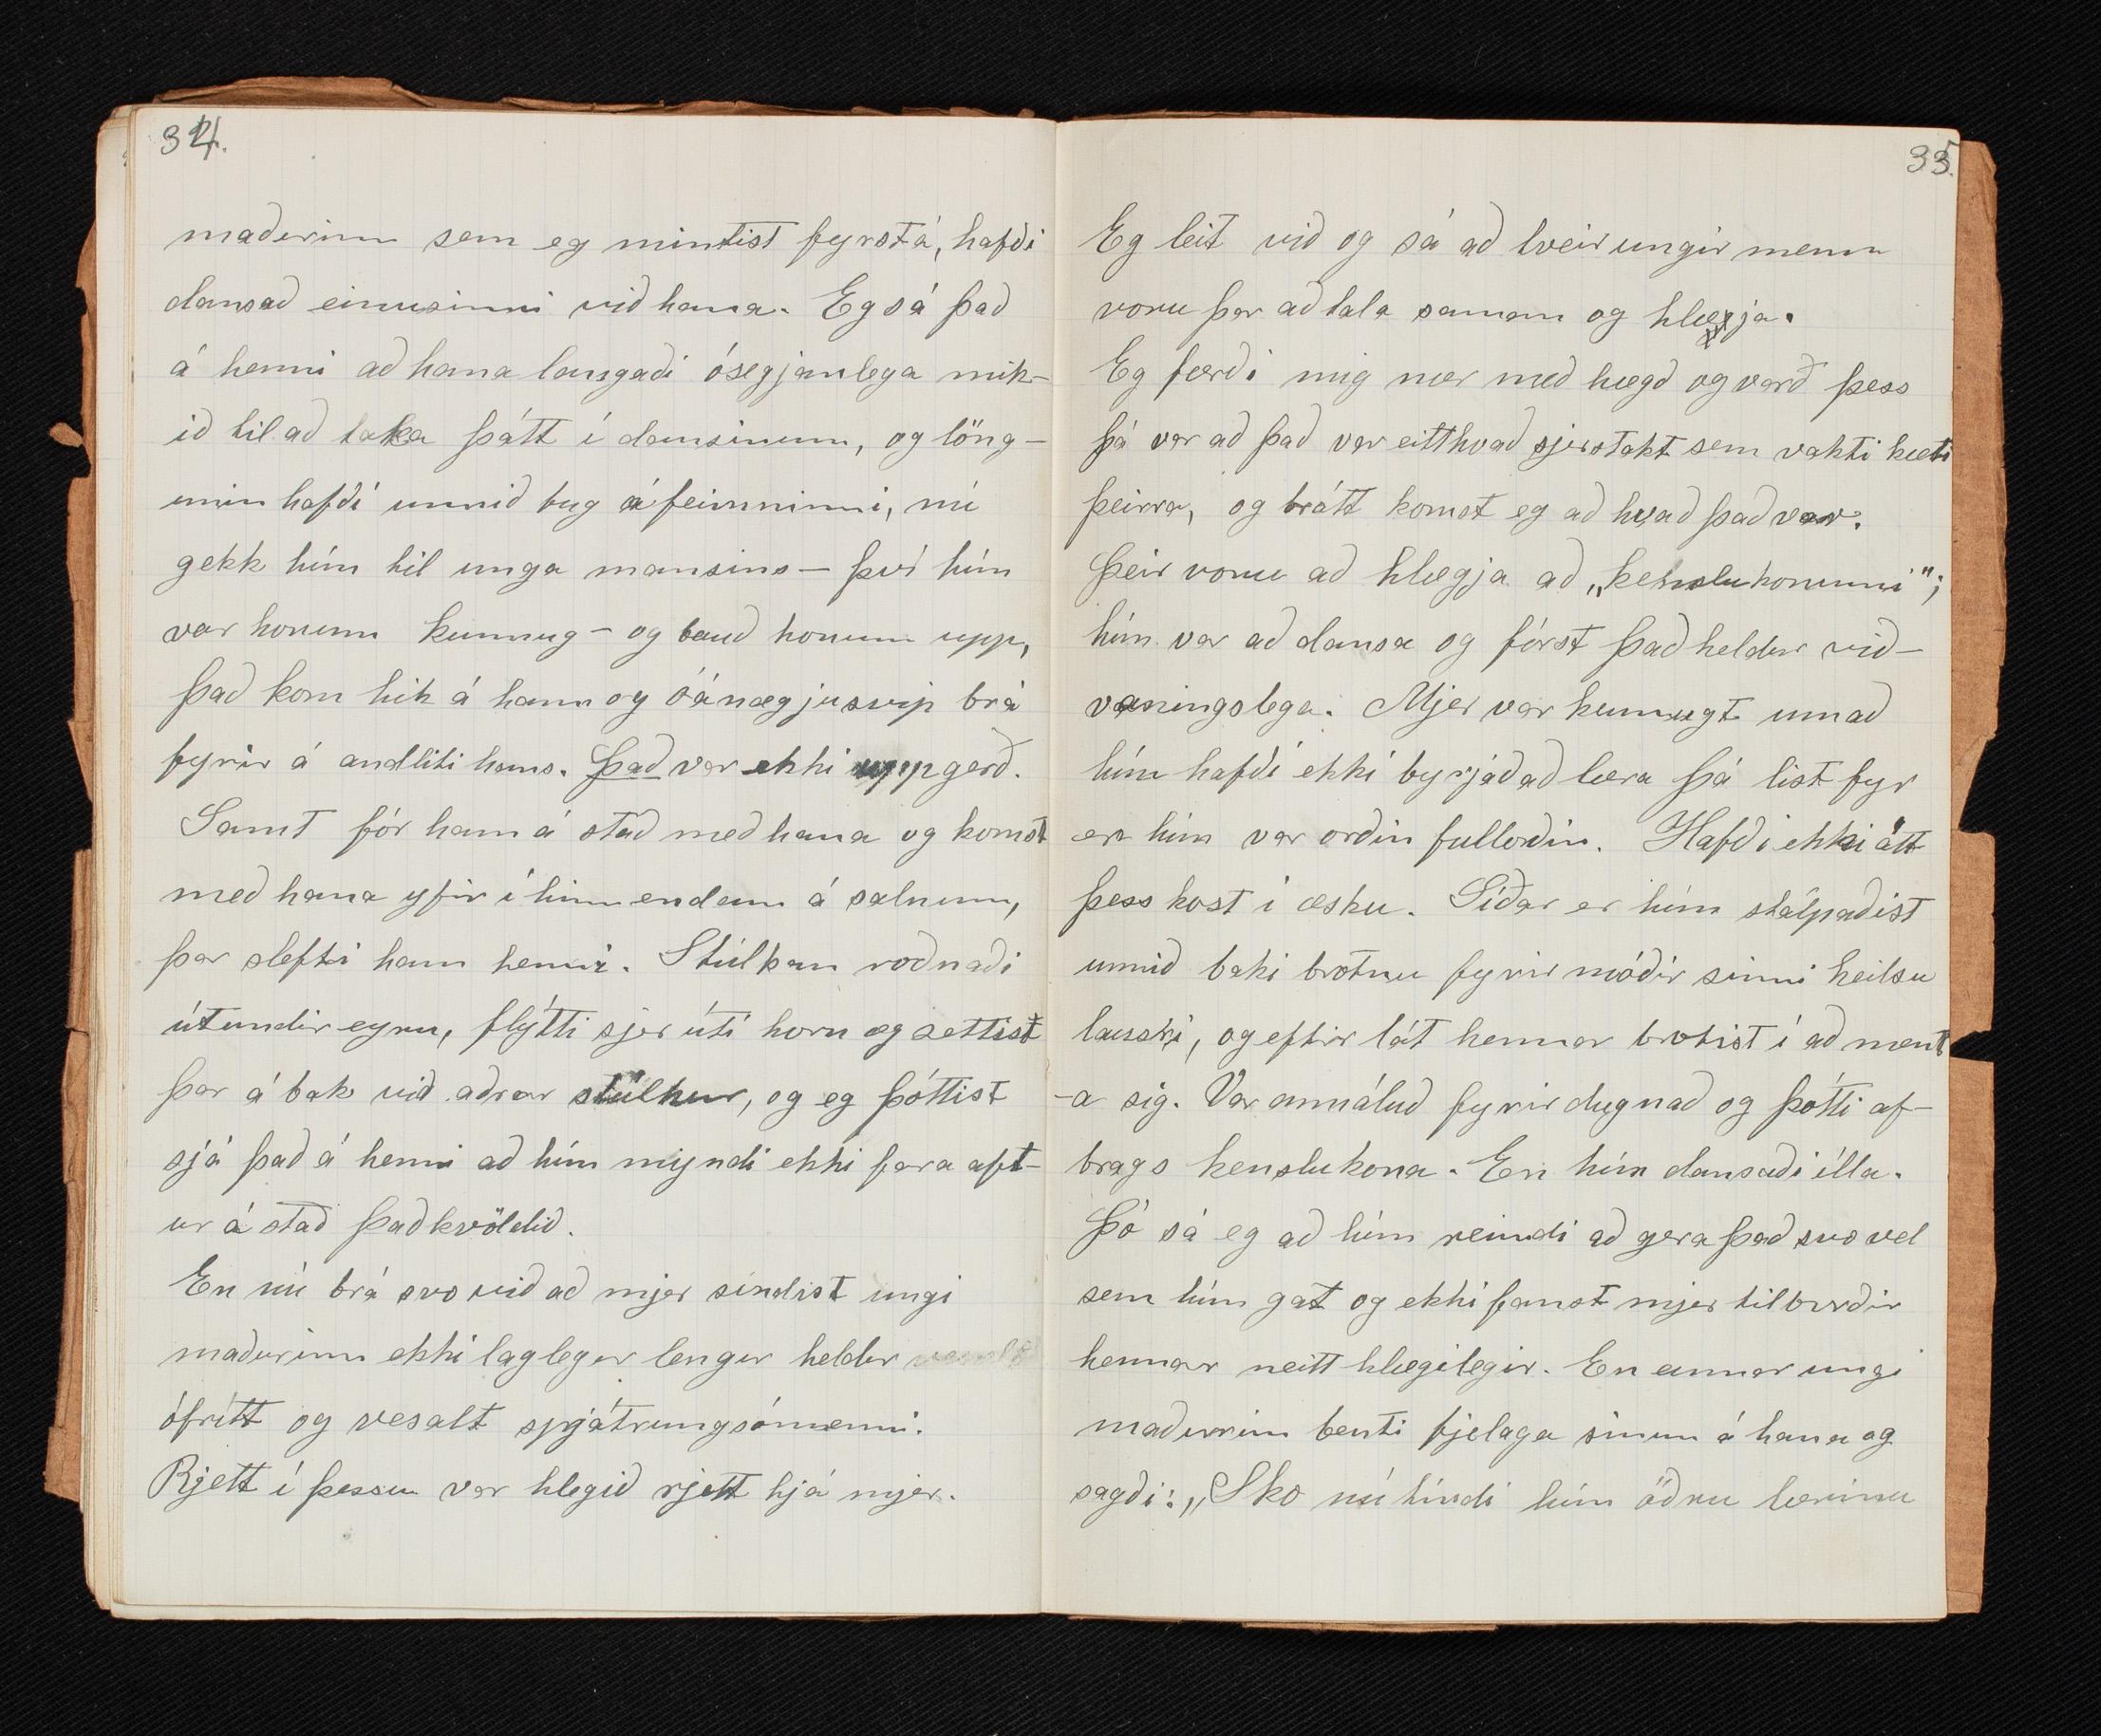 34.
maðurinn sem eg mintist fyrst á, hafði
dansað einusinni við hana. Eg sá það
á henni að hana langaði ósegjanlega mik-
ið til að taka þátt í dansinum, og löng-
unin hafði unnið bug á feimninni, nú
gekk hún til unga mansins – því hún
var honum kunnug – og bauð honum upp,
það kom hik á hann og óánægjusvip brá
fyrir á andliti hans. Það var ekki uppgerð.
Samt fór hann á stað með hana og komst
með hana yfir í hinn endann á salnum,
þar slefti hann henni. Stúlkan roðnaði
útundir eyru, flýtti sjer útí horn og settist
þar á bak við aðrar stúlkur, og eg þóttist
sjá það á henni að hún myndi ekki fara aft-
ur á stað það kvöldið.
En nú brá svo við að mjer síndist ungi
maðurinn ekki laglegur lengur heldur
ófrítt og vesalt spjátrungsómenni.
Rjett í þessu var hlegið rjett hjá mjer.
35.
Eg leit við og sá að tveir ungir menn
voru þar að tala saman og hlægja.
Eg færði mig nær með hægð og varð þess
þá var að það var eitthvað sjerstakt sem vakti kæti
þeirra, og brátt komst eg að hvað það var.
Þeir voru að hlægja að „kenslukonunni";
hún var að dansa og fórst það heldur við-
vaningslega. Mjer var kunnugt um að
hún hafði ekki byrjað að læra þá list fyr
en hún var orðin fullorðin. Hafði ekki átt
þess kost í æsku. Síðar er hún stálpaðist
unnið baki brotnu fyrir móðir sinni heilsu
lausri, og eftir lát hennar brotist í að ment
-a sig. Var annáluð fyrir dugnað og þótti af-
brags kenslukona. En hún dansaði illa.
Þó sá eg að hún reindi að gera það svo vel
sem hún gat og ekki fanst mjer tilburðir
hennar neitt hlægilegir. En annar ungi
maðurinn benti fjelaga sínum á hana og
sagði: „Sko nú tíndi hún öðru lærinu